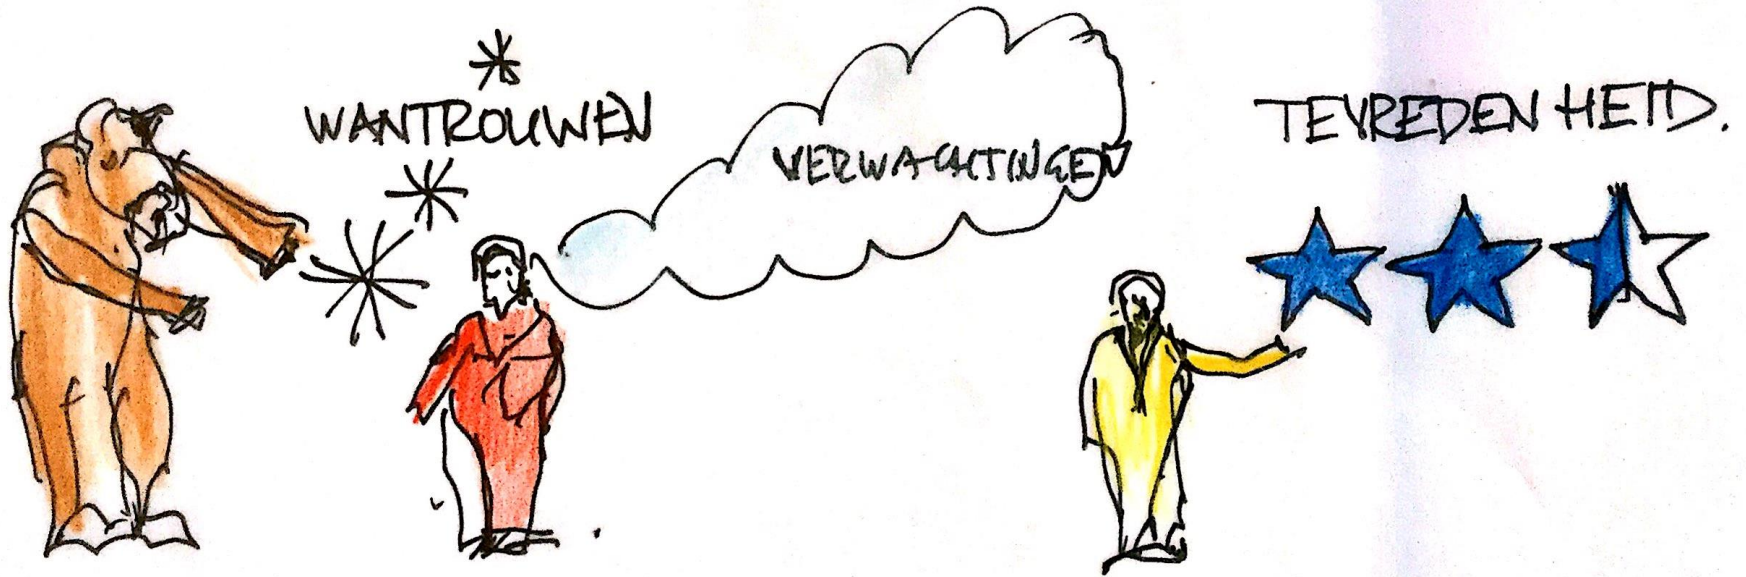 WANTROUWEN
VERWACHTINGEN
TEVREDENHEID.